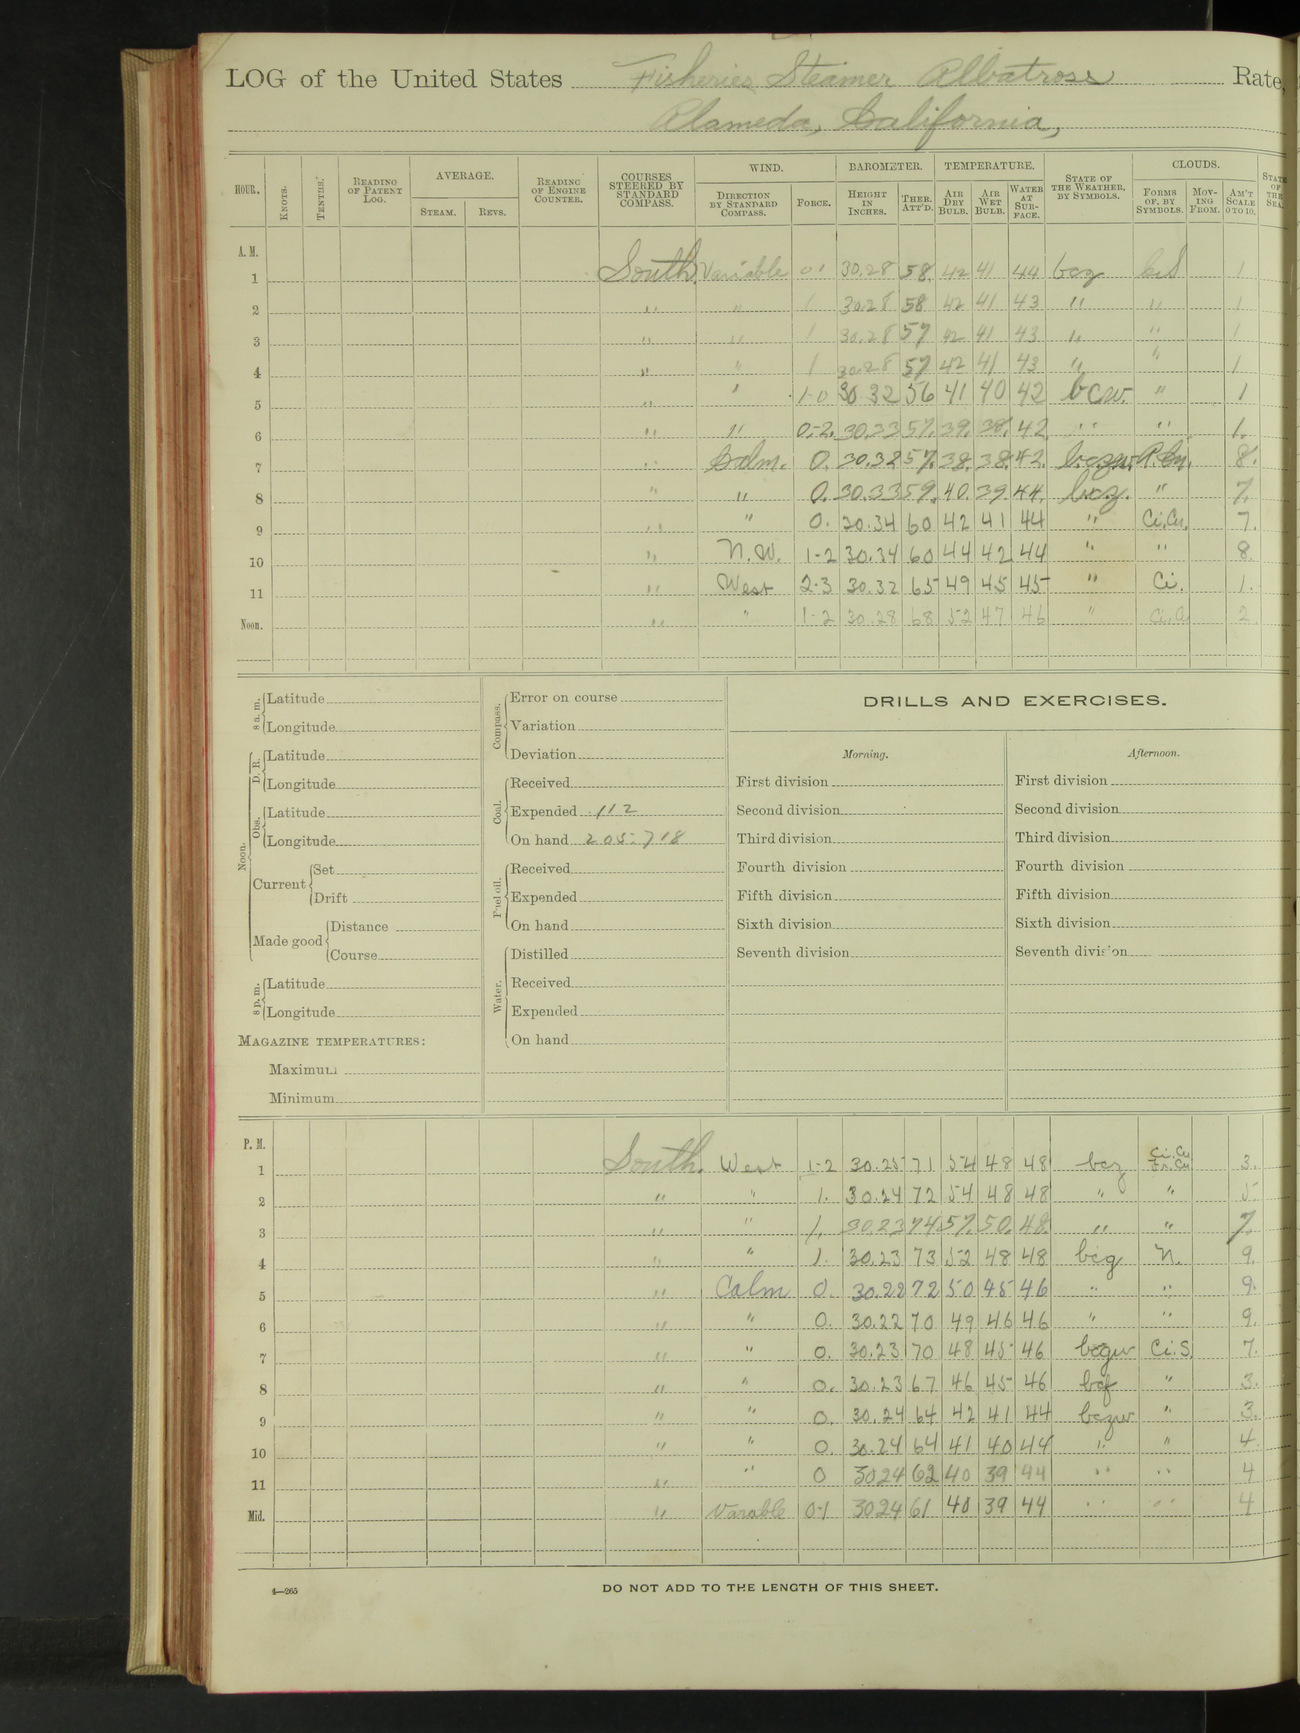 LOG of the United States Fisheries Steamer Albatross Rate,
Alameda, California,
HOUR. KNOTS. TENTHS. READING OF PATENT LOG. AVERAGE. STEAM. REVS. READING OF ENGINE COUNTER. COURSES STEERED BY STANDARD COMPASS. WIND. DIRECTION BY STANDARD COMPASS. FORCE. BAROMETER. HEIGHT IN INCHES. THER. ATT'D. TEMPERATURE. AIR DRY BULB. AIR WET BULB. WATER AT SURFACE. STATE OF THE WEATHER, BY SYMBOLS. CLOUDS. FORMS OF, BY SYMBOLS. MOVING FROM. AM'T SCALE 0 TO 10. STATE OF THE SEA.
A. M.
1 South Variable 0-1 30.28 58 42 41 44 bcz 1
2 " " 1 30.28 58 42 41 43 " " 1
3 " " 1 30.28 57 42 41 43 " " 1
4 " " 1 30.28 57 42 41 43 " " 1
5 " " 1-0 30 32 56 41 40 42 bcw. " 1
6 " " 0-2. 30.33 57. 39. 38. 42. " " 1.
7 " Calm. 0. 30.32 57. 38. 38. 42. bczw. 8.
8 " " 0. 30.33 59. 40. 39. 44. bcz. " 7.
9 " " 0. 30.34 60 42 41 44 " Ci.Cu. 7.
10 " N.W. 1-2 30.34 60 44 42 44 " " 8.
11 " West 2-3 30.32 65 49 45 45 " Ci. 1.
Noon. " " 1-2 30.28 68 52 47 46 " 2.
8 a. m. Latitude
Longitude
Noon. D. R. Latitude
Longitude
Obs. Latitude
Longitude
Current Set
Drift
Made good Distance
Course
8 p. m. Latitude
Longitude
MAGAZINE TEMPERATURES:
Maximum
Minimum
Compass. Error on course
Variation
Deviation
Coal. Received
Expended 112
On hand 205-718
Fuel oil. Received
Expended
On hand
Water. Distilled
Received
Expended
On hand
DRILLS AND EXERCISES.
Morning.
First division
Second division
Third division
Fourth division
Fifth division
Sixth division
Seventh division
Afternoon.
First division
Second division
Third division
Fourth division
Fifth division
Sixth division
Seventh division
P. M.
1 South. West 1-2 30.25 71 54 48 48 bcz Ci.Cu Fr.Cu 3.
2 " " 1. 30.24 72 54 48 48 " " 5
3 " " 1. 30.23 74 57. 50. 48. " " 7.
4 " " 1. 30.23 73 52 48 48 bcg N. 9.
5 " Calm 0. 30.22 72 50 45 46 " " 9.
6 " " 0. 30.22 70 49 46 46 " " 9.
7 " " 0. 30.23 70 48 45 46 bcgw Ci.S. 7.
8 " " 0. 30.23 67 46 45 46 bcf " 3.
9 " " 0. 30.24 64 42 41 44 bczw " 3.
10 " " 0. 30.24 64 41 40 44 " " 4.
11 " " 0 3024 62 40 39 44 " " 4
Mid. " Varable 0-1 3024 61 40 39 44 " " 4
4—265
DO NOT ADD TO THE LENGTH OF THIS SHEET.